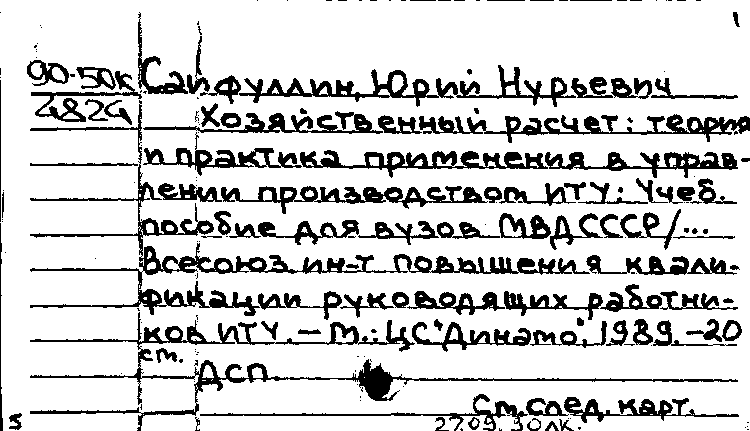 1
90-50к Сайфуллин, Юрий Нурьевич
4824 Хозяйственный расчет: теория
и практика применения в управ-
лении производством ИТУ: Учеб.
пособие для вузов МВД СССР/...
Всесоюз. ин-т повышения квали-
фикации руководящих работни-
ков ИТУ. – М.: ЦС "Динамо", 1989. – 20
см.
ДСП.
См. след. карт.
5 27.09.90 ЛК.